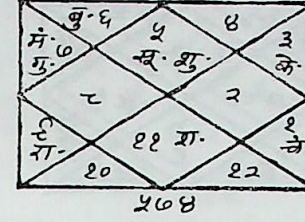 बु. ६ ५ ४
मं. ७ सू. शु. ३
गु. के.
८ २
९ ११ श. १
रा. चं
१० १२
५७४